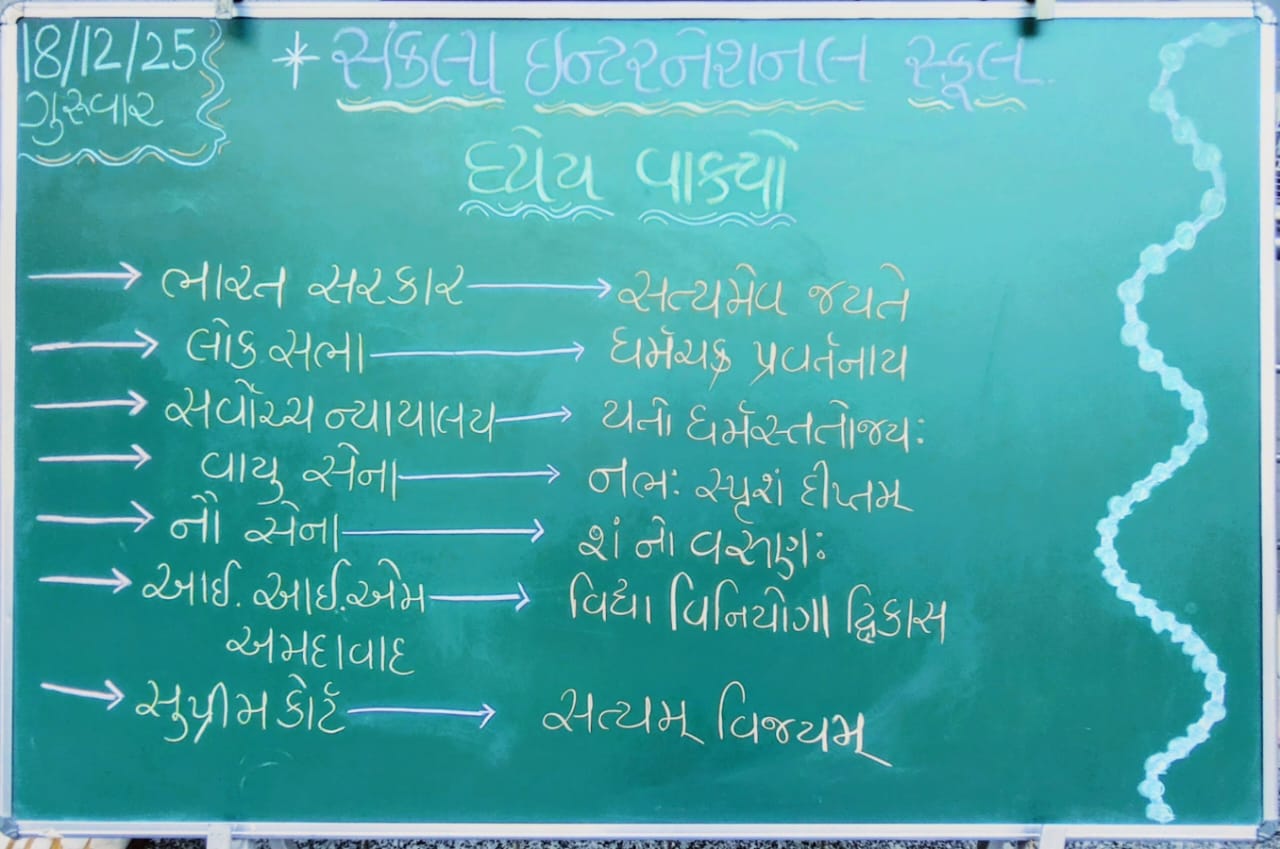 18/12/25
ગુરુવાર
* સંકલ્પ ઇન્ટરનેશનલ સ્કૂલ
ધ્યેય વાક્યો
→ ભારત સરકાર → સત્યમેવ જયતે
→ લોકસભા → ધર્મચક્ર પ્રવર્તનાય
→ સર્વોચ્ચ ન્યાયાલય → યતો ધર્મસ્તતોજયઃ
→ વાયુ સેના → નભઃ સ્પૃશં દીપ્તમ્
→ નૌ સેના → શં નો વરુણઃ
→ આઈ. આઈ.એમ → વિદ્યા વિનિયોગા દ્વિકાસ
અમદાવાદ
→ સુપ્રીમકોર્ટ → સત્યમ્ વિજયમ્